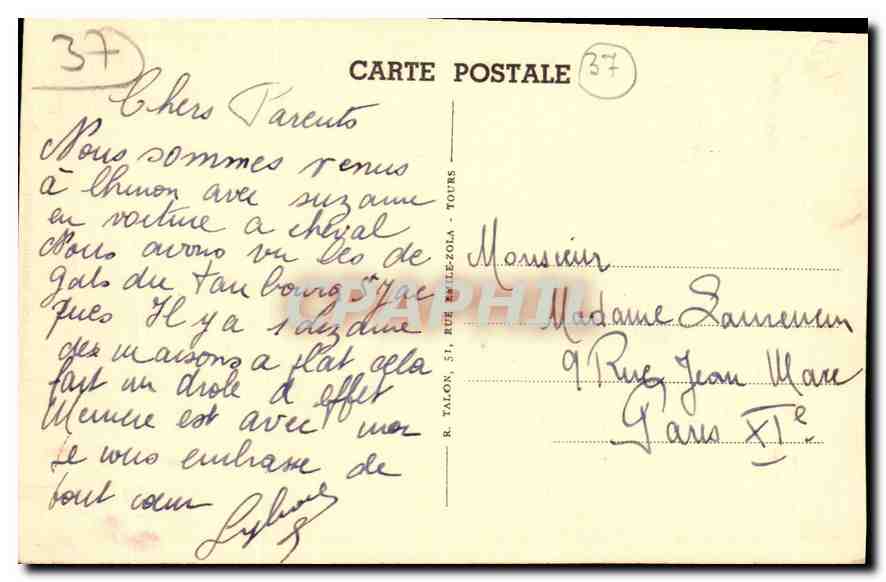 37
CARTE POSTALE
37
Chers Parents
Nous sommes venus
à Chinon avec suzanne
en voiture a cheval
Nous avons vu les de
gats du faubourg St Jac
ques Il y a 1 dizaine
des maisons a plat cela
fait un drole d effet
Memere est avec moi
je vous embrasse de
tout cœur
R. TALON, 51, RUE EMILE-ZOLA - TOURS
CPAPHIL
Monsieur
Madame
9 Rue Jean Mace
Paris XIe